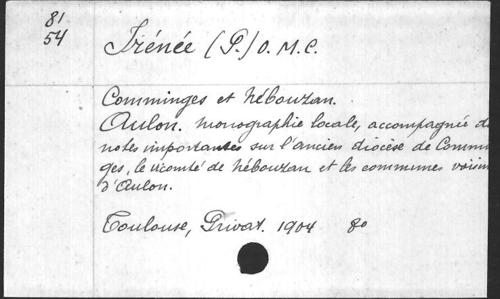 81
54
Irénée (P.) O. M. C.
Comminges et Nébouzan.
Aulon. Monographie locale, accompagnée de
notes importantes sur l'ancien diocèse de Commin
ges, le vicomté de Nébouzan et les communes voisin
d'Aulon.
Toulouse, Privat. 1904 8o